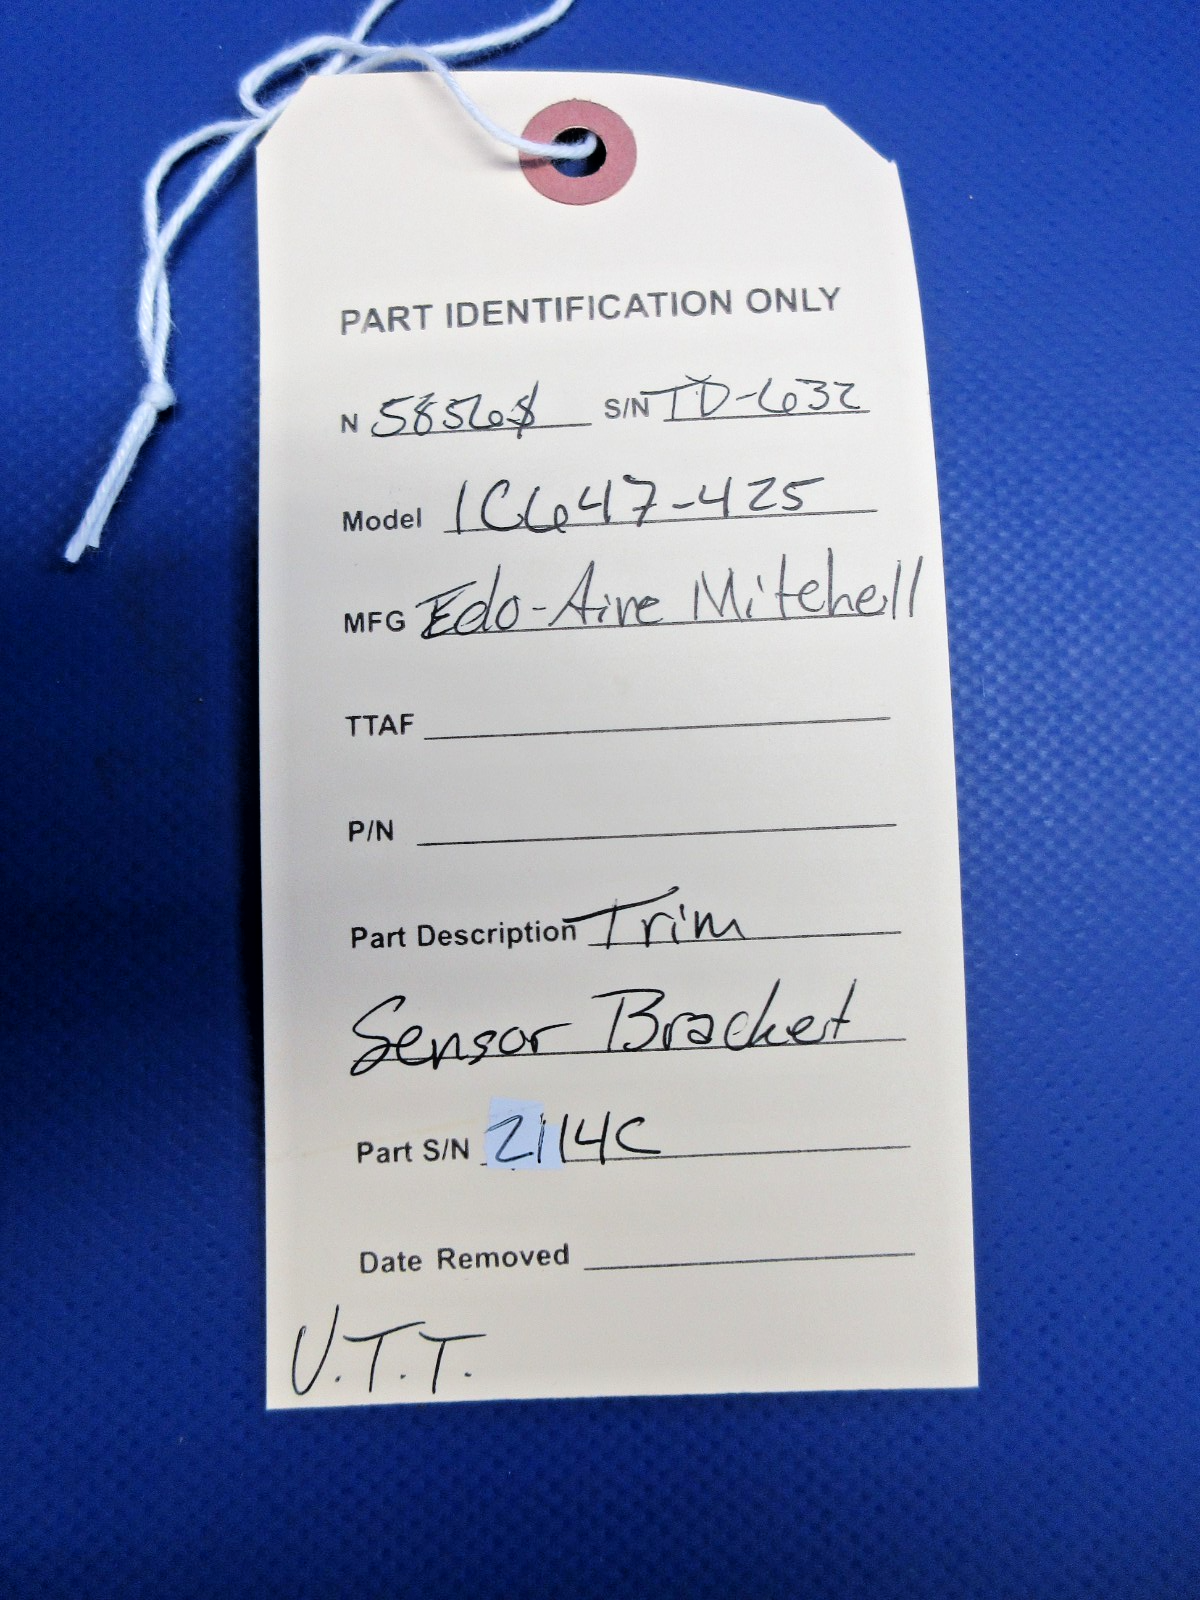 PART IDENTIFICATION ONLY
N 58565 S/N TD-632
Model 1C647-425
MFG Edo-Aire Mitchell
TTAF
P/N
Part Description Trim
Sensor Bracket
Part S/N 2114C
Date Removed
U.T.T.